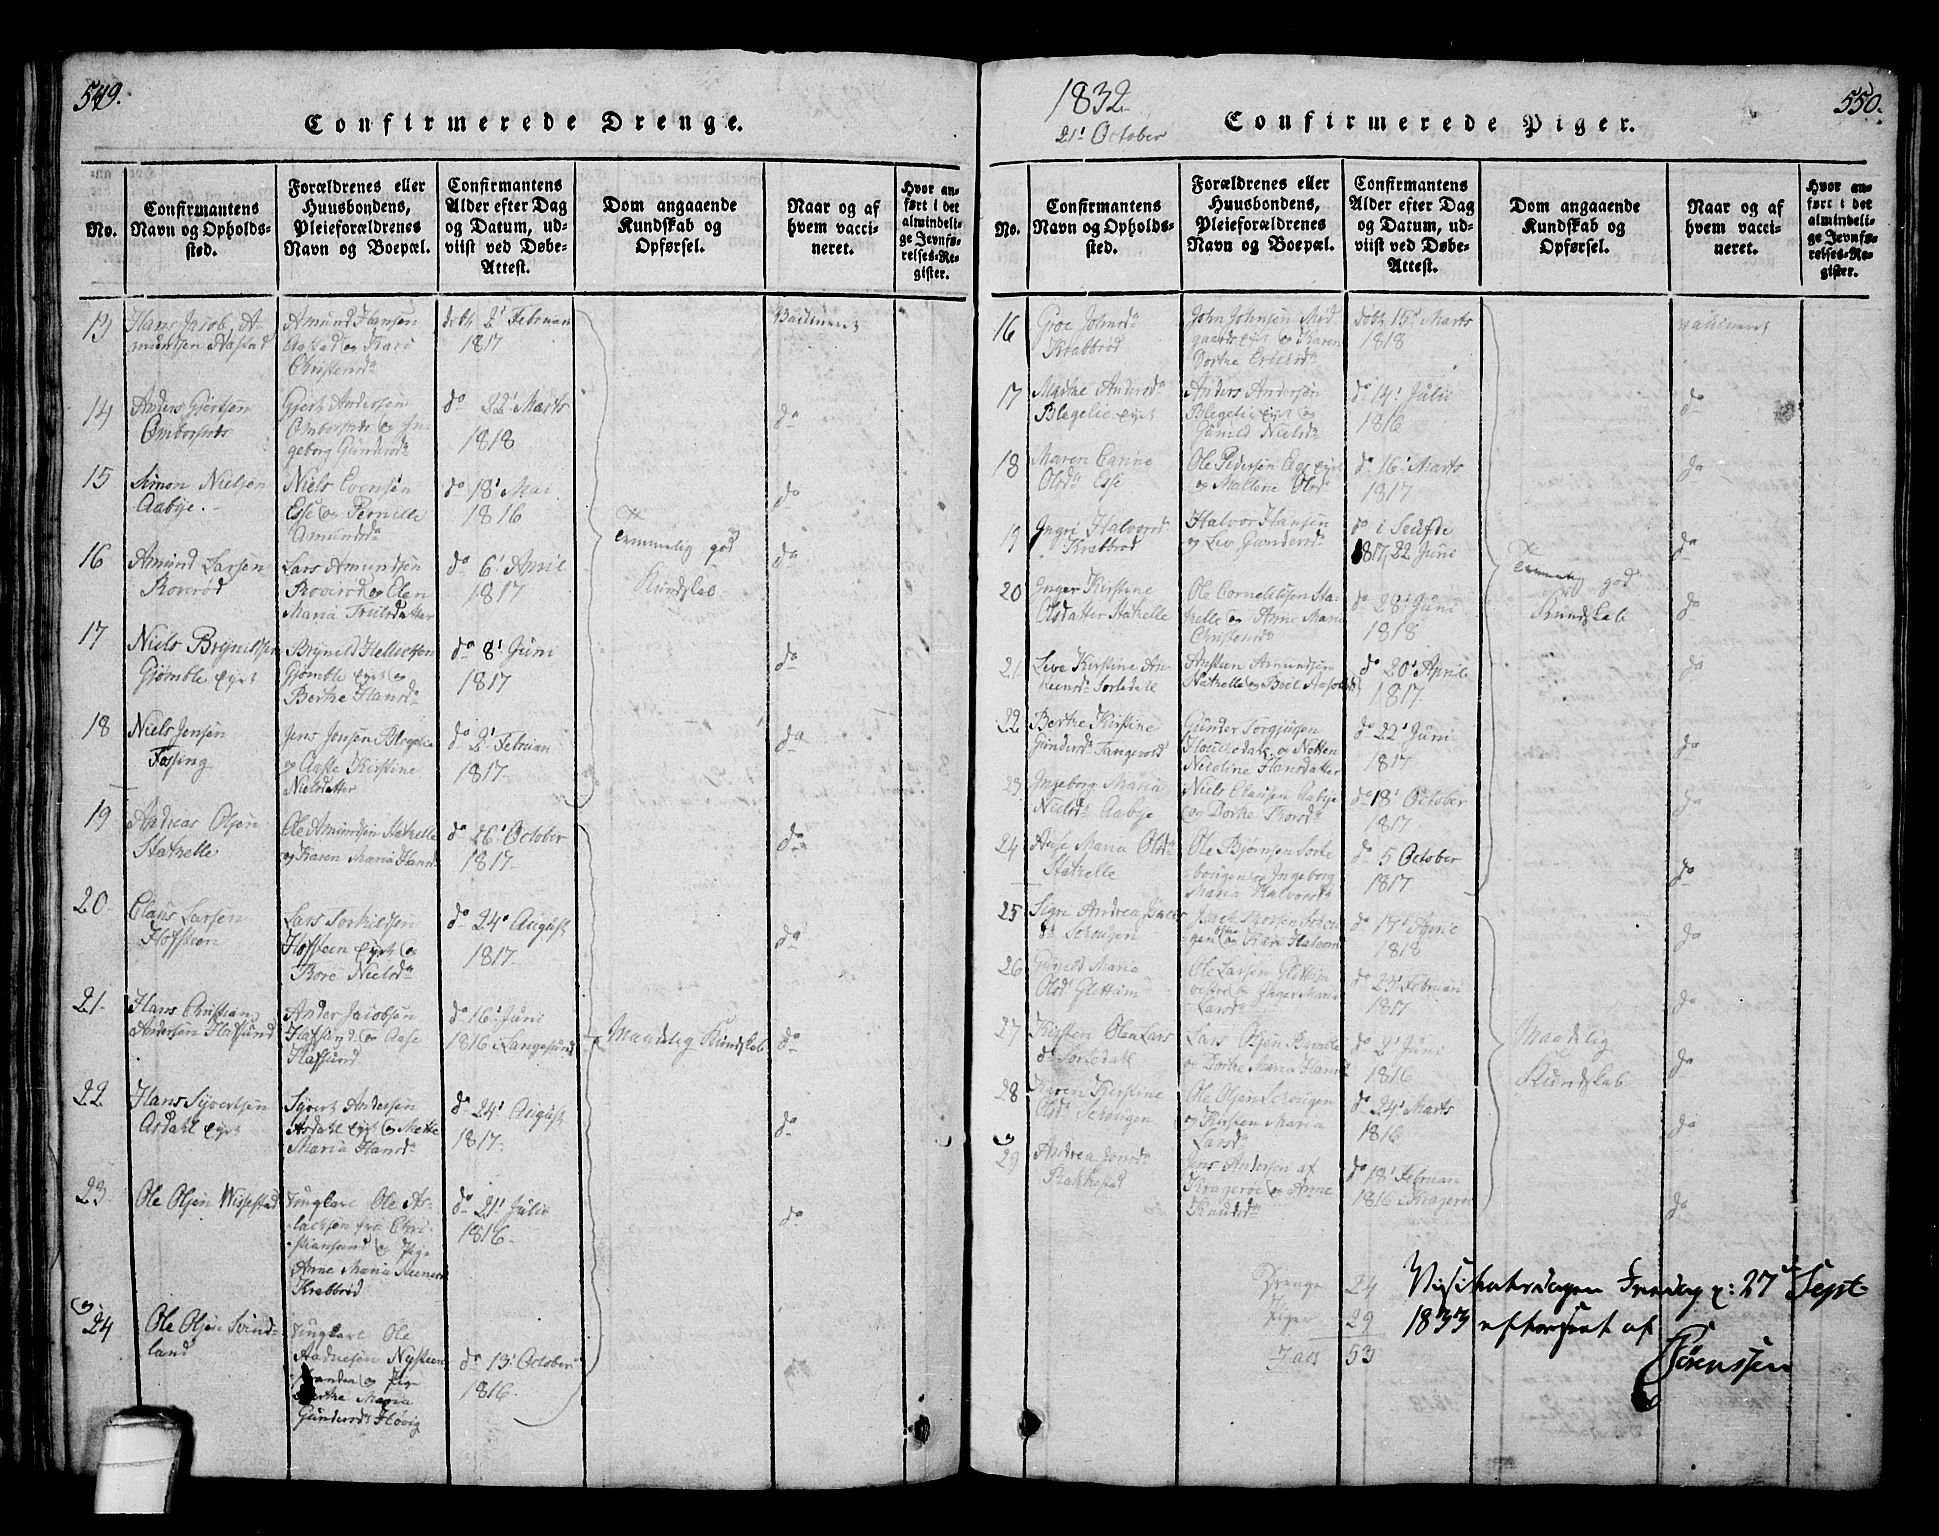 549.
Confirmerede Drenge.
No.
Confirmantens
Navn og Opholds-
sted.
Forældrenes eller
Huusbondens,
Pleieforældrenes
Navn og Boepæl.
Confirmantens
Alder efter Dag
og Datum, ud-
viist ved Døbe-
Attest.
Dom angaaende
Kundskab og
Opførsel.
Naar og af
hvem vacci-
neret.
Hvor an-
ført i det
almindeli-
ge Jevnfø-
relses-Re-
gister.
13
Hans Jacob A-
mundsen Aastad
Amund Hansen
Aastad og Kari
Christensdr
døbt 2' Februari
1817
Vaccineret
14
Anders Gjertsen
Ombordsnes
Gjert Andersen
Ombordsnes og In-
geborg Gundersdr
do 22' Marts
1818
do
15
Simon Nielsen
Aabye.
Niels Evensen
Esse og Pernille
Amundsdr
do 18' Mai
1816
do
16
Amund Larsen
Roverød
Lars Amundsen
Roverød og Elen
Maria Truelsdatter
do 6' April
1817
do
Temmelig god
Kundskab
17
Niels Brynildsen
Gjømble eyet
Brynild Hellicksen
Gjømble eyet og
Berthe Hansdr
do 8' Juni
1817
do
18
Niels Jensen
Fossing
Jens Jensen Blegelie
og Aaste Kirstine
Nielsdatter
do 2' Februari
1817
do
19
Andreas Olsen
Stathelle
Ole Amundsen Stathelle
og Karen Maria Hansd
do 26' October
1817
do
20
Claus Larsen
Hofsteen
Lars Torkildsen
Hofsteen eyet og
Tore Nielsdr
do 24' August
1817
do
21
Hans Christian
Andersen Hafsund
Ander Jacobsen
Hafsund og Aase
Hafsund
do 16' Juni
1816 i Langesund
Maadelig Kundskab
do
22
Hans Syvertsen
Asdahl eyet
Syvert Andersen
Asdahl eyet og Mette
Maria Hansdr
do 24' August
1817
do
23
Ole Olsen Wissestad
Ungkarl Ole As-
lacksen fra Chri-
stiansund og Pige
Anne Maria
Krabberød
do 21' Julii
1816
do
24
Ole Olsen Svind-
land
Ungkarl Ole
Aadnesen Nysteen
og Pige
Berthe Maria
Gundersdr Høvig
do 13' October
1816
1832
21' October
Confirmerede Piger.
550.
No.
Confirmantens
Navn og Opholds-
sted.
Forældrenes eller
Huusbondens,
Pleieforældrenes
Navn og Boepæl.
Confirmantens
Alder efter Dag
og Datum, ud-
viist ved Døbe-
Attest.
Dom angaaende
Kundskab og
Opførsel.
Naar og af
hvem vacci-
neret.
Hvor an-
ført i det
almindeli-
ge Jevnfø-
relses-Re-
gister.
16
Groe Johnsdr
Krabbrød
John Johnsen Mid
gaards eyet og Karen
Dorthe Ericsdr
døbt 15' Marts
1818
vaccineret
17
Marthe Andersdr
Blegelie eyet
Anders Andersen
Blegelie eyet og
Gunild Nielsdr
do 14' Julii
1816
do
18
Maren Carine
Olsdr Esse
Ole Pedersen Aas eyet
og Mallene Olsd
do 16' Marts
1817
do
19
Ingri Halvorsd
Krabbrød
Halvor Hansen
og Liv Gundersdr
do i
1817 22 Juni
do
20
Inger Kirstine
Olsdatter Stathelle
Ole Corneliusen Sta-
thelle og Anne Maria
Christensdr
do 28' Juni
1818
do
Temmelig god
Kundskab
21
Live Kirstine An-
stensdr Torsdale
Ansteen Amundsen
Stathelle og Boel
do 20' April
1817
do
22
Berthe Kirstine
Gundersdr Tangvald
Gunder Torgjusen
og Netten
Nicoline Hansdatter
do 22' Juni
1817
do
23
Ingeborg Maria
Nielsdr Aabye
Niels Clausen Aabye
og Dorthe Thorsdr
do 18' October
1817
do
24
Aase Maria Olsdr
Stathelle
Ole Bjørnsen
og Ingeborg
Maria Halvorsdr
do 5 October
1817
do
25
Sigri Andrea
dr Schougen
og Kari Halvorsd
do 17' April
1818
do
26
Gunild Maria
Olsd Glittum
Ole Larsen Glittum
vestre og Inger Maria
Larsdr
do 23' Februari
1817
do
27
Kirsten Olea Lars
dr Torsdahl
Lars Olsen Bamble
og Dorthe Maria Hansd
do 2' Juni
1816
do
Maadelig
Kundskab
28
Karen Kirstine
Olsdr Schougen
Ole Olsen Schougen
og Kirsten Maria
Larsdr
do 24' Marts
1816
do
29
Andrea Jensdr
Rakkestad
Jens Andersen af
Kragerøe og Anne
Knudsdr
do 18' Februari
1816 i Kragerøe
do
Drenge 24
Piger 29
Ialt 53
Visitatsdagen Fredag d: 27de Sept
1833 efterseet af
Sørenssen